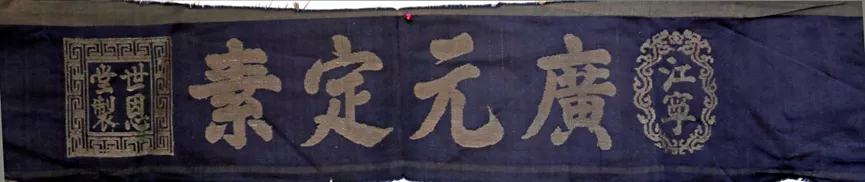 江寧
廣元定素
世恩
堂製